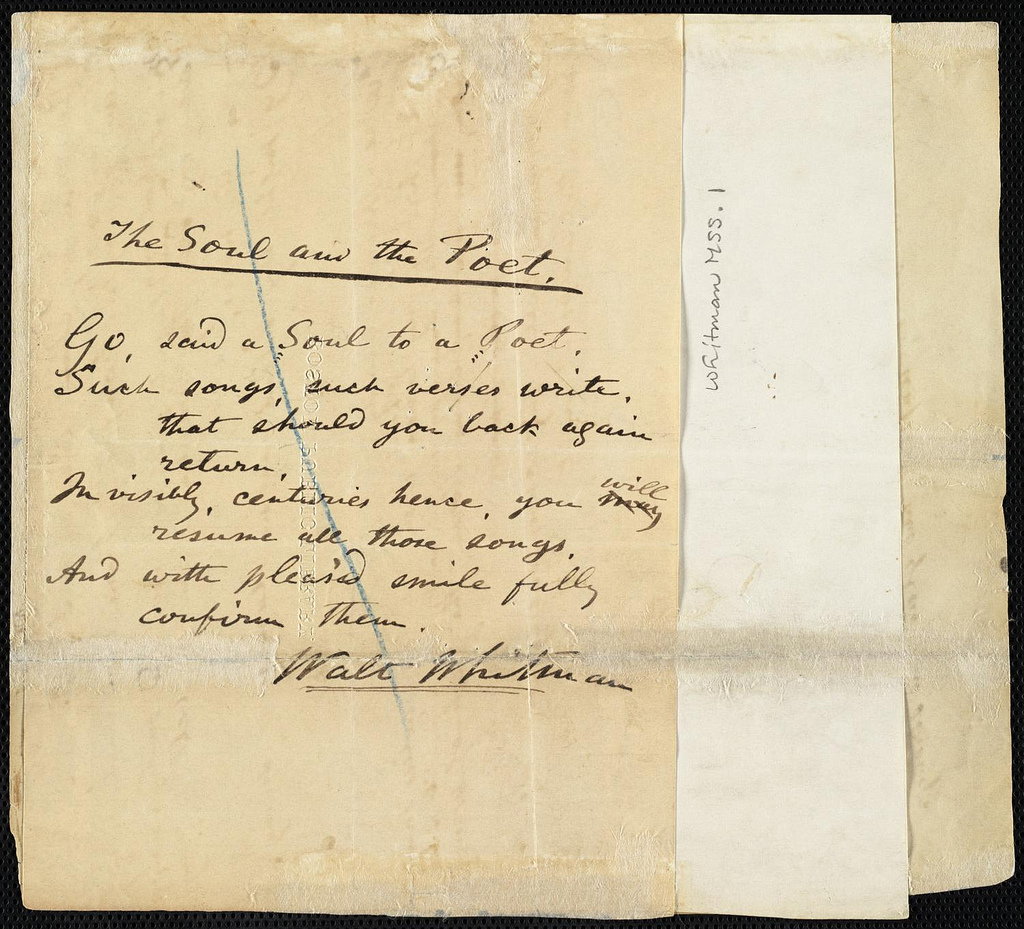 The Soul and the Poet.
Go, said a Soul to a Poet,
Such songs, such verses write,
that should you back again
return,
Invisibly, centuries hence, you may will
resume all those songs,
And with pleas'd smile fully
confirm them.
Walt Whitman
Whitman MSS. 1
BOSTON PUBLIC LIBRARY